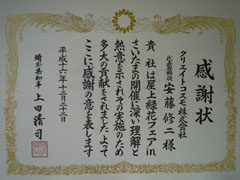 感謝状
クリエイトコスモ株式会社
代表取締役
安藤修二様
貴社は屋上緑花フェアin
さいたまの開催に深い理解と
熱意を示されその実施のため
多大の貢献をされましたよって
ここに感謝の意を表します
平成十六年十二月二十三日
埼玉県知事 上田清司